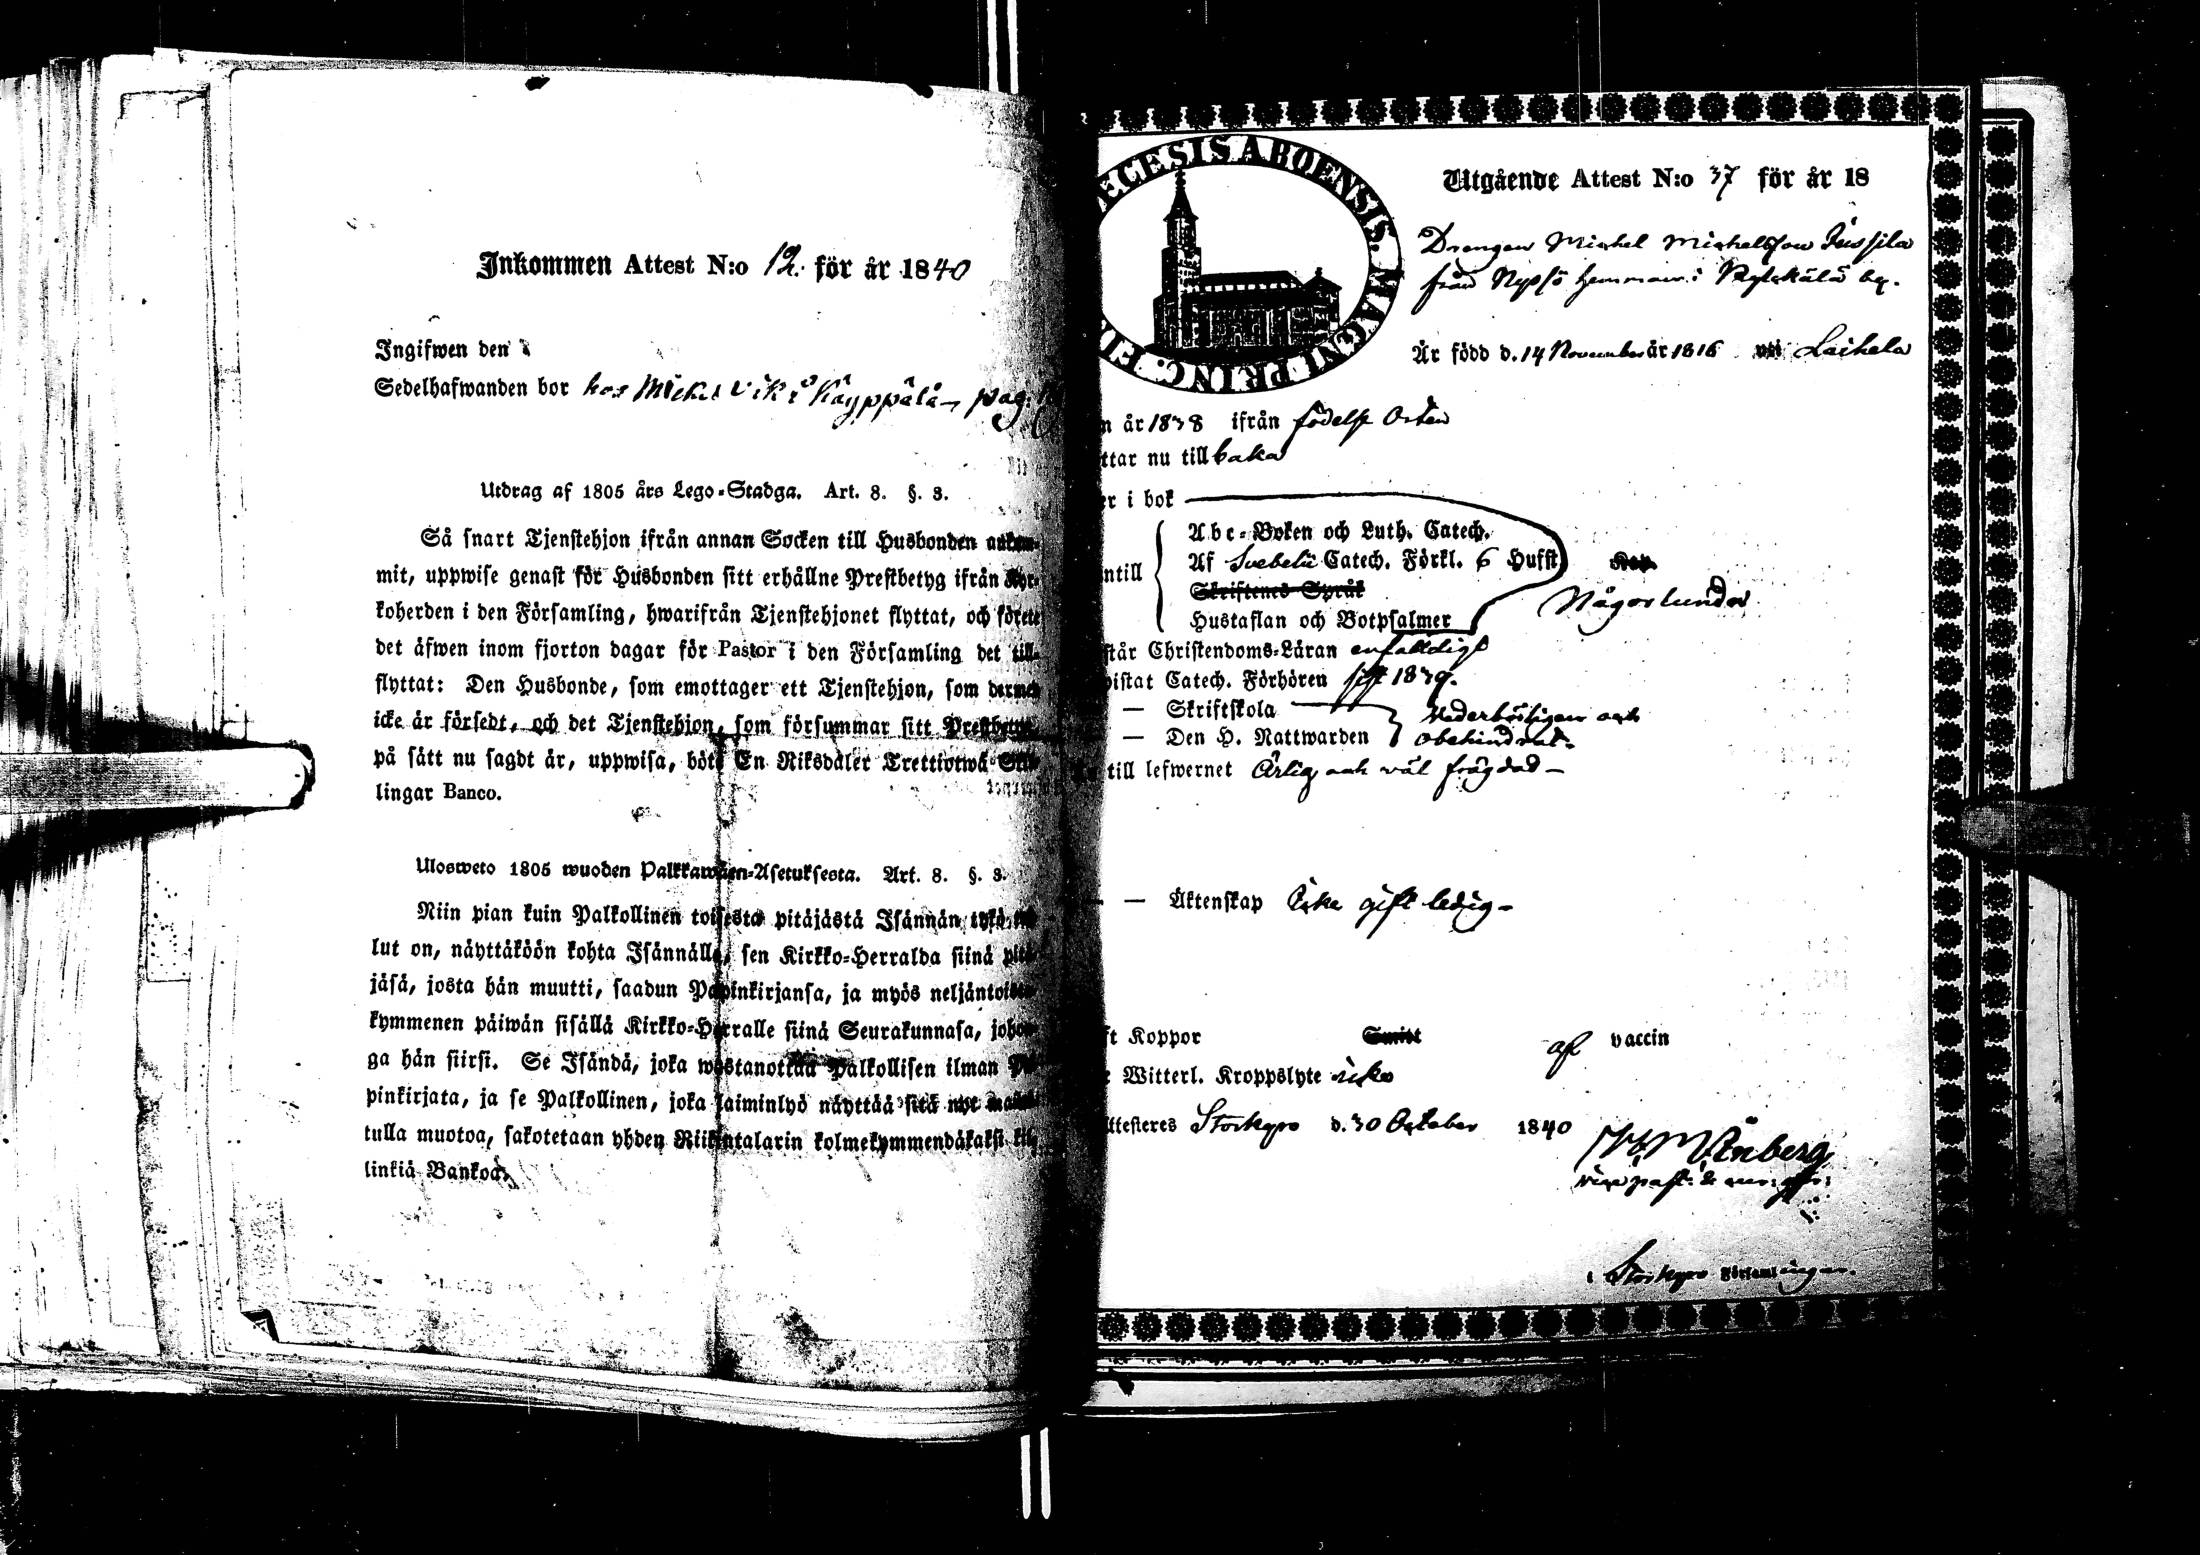 Inkommen Attest N:o 12. för år 1840
Ingifwen den
Sedelhafwanden bor hos Mickel i Käyppälä pag.
Utdrag af 1805 års Lego-Stadga. Art. 8. §. 3.
Så snart Tjenstehjon ifrån annan Socken till Husbonden
mit, uppwise genast för Husbonden sitt erhållne Prestbetyg ifrån Kyr-
koherden i den Församling, hwarifrån Tjenstehjonet flyttat, och förete
det äfwen inom fjorton dagar för Pastor i den Församling det till-
flyttat: Den Husbonde, som emottager ett Tjenstehjon, som dermed
icke är försedt, och det Tjenstehjon, som försummar sitt Prestbetyg,
på sätt nu sagdt är, uppwisa, böte En Riksdaler Trettiotwå Skil-
lingar Banco.
Ulosweto 1805 wuoden Palkkawäen-Asetuksesta. Art. 8. §. 3.
Niin pian kuin Palkollinen toisesta pitäjästä Isännän tykö
lut on, näyttäköön kohta Isännälle, sen Kirkko-Herralda siinä pitä-
jäsä, josta hän muutti, saadun Papinkirjansa, ja myös neljäntoista-
kymmenen päiwän sisällä Kirkko-Herralle siinä Seurakunnasa, johon-
ga hän siirsi. Se Isändä, joka wastanottaa Palkollisen ilman Pa-
pinkirjata, ja se Palkollinen, joka laiminlyö näyttää sitä nyt mainit-
tulla muotoa, sakotetaan yhden Riikintalarin kolmekymmendäkaksi kil-
linkiä Bankoa.
ŒCESIS ABOENSIS. MAGNI PRINC. FI
Utgående Attest N:o 37 för år 18
Drengen Michel Michelsson Jussila
från Nypsö hemman i by.
Är född d. 14 November år 1816 uti Laihela
n år 1838 ifrån födelse Orten
ttar nu till baka
er i bok
ntill
Abc-Boken och Luth. Catech.
Af Svebelii Catech. Förkl. 6 Hufst
Skriftenes Språk
Hustaflan och Botpsalmer
Någorlunda
står Christendoms-Läran enfaldigt
bistat Catech. Förhören sist 1839.
— Skriftskola
— Den H. Nattwarden
Vederbörligen och
obehindrat.
till lefwernet Ärlig och väl frägdad —
— — Äktenskap Icke gift ledig —
ft Koppor Smitt af vaccin
Witterl. Kroppslyte icke
ttesteres Storkyro d. 30 October 1840
i Storkyro Församlingar.